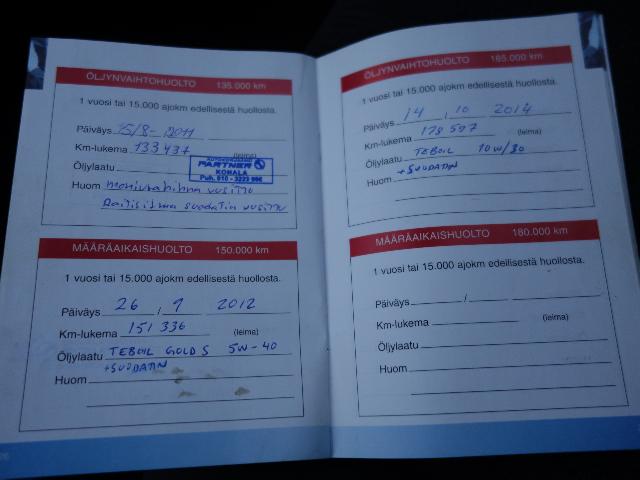 ÖLJYNVAIHTOHUOLTO 135.000 km
1 vuosi tai 15.000 ajokm edellisestä huollosta.
Päiväys 15/8- 2011
Km-lukema 133437 (leima)
Öljylaatu
PARTNER
KONALA
Puh. 010 - 3223 996
Huom moniurahihna uusittu
Raitisilma suodatin uusittu
MÄÄRÄAIKAISHUOLTO 150.000 km
1 vuosi tai 15.000 ajokm edellisestä huollosta.
Päiväys 26 / 9 2012
Km-lukema 151 336 (leima)
Öljylaatu TEBOIL GOLD S 5W-40
Huom +SUODATIN
ÖLJYNVAIHTOHUOLTO 165.000 km
1 vuosi tai 15.000 ajokm edellisestä huollosta.
Päiväys 14 / 10 2014
Km-lukema 178 597 (leima)
Öljylaatu TEBOIL 10W/30
Huom +SUODATIN
MÄÄRÄAIKAISHUOLTO 180.000 km
1 vuosi tai 15.000 ajokm edellisestä huollosta.
Päiväys /
Km-lukema (leima)
Öljylaatu
Huom